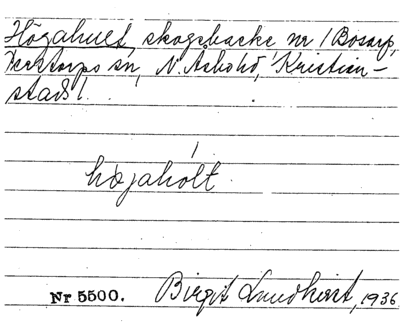 Högahult, skogsbacke nr 1 Bosarp,
Perstorps sn, N. Åsbohd, Kristian-
stads l.
högahólt
Nr 5500. Birgit Lundkvist, 1936